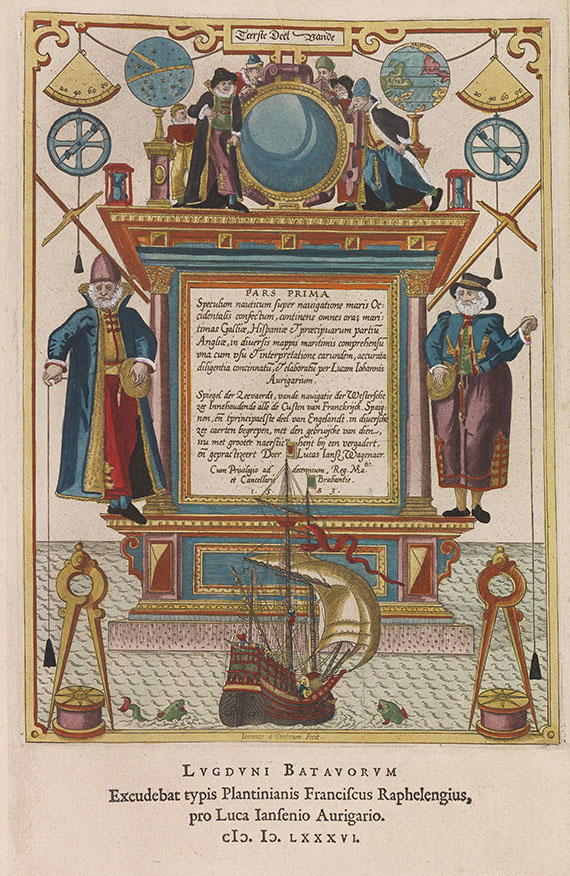 Teerste Deel Vande
20 40 60 80
20 40 60 80
PARS PRIMA
Speculum nauticum super navigatione maris Oc=
cidentalis confectum, continens omnes oras mari=
timas Galliæ, Hispaniæ & præcipuarum partiū
Angliæ, in diversis mappis maritimis comprehensū
una cum usu & interpretatione earundem, accurata
diligentia concinnatū, & elaboratū per Lucam Iohannis
Aurigarium.
Spiegel der Zeevaerdt, vande navigatie der Westersche
zee Innehoudende alle de Custen van Franckrijck, Spaig=
nen, eñ t'principaelste deel van Engelandt, in diversche
zee caerten begrepen, met den gebruijcke van dien,
nu met grooter naersticheijt bij een vergadert,
eñ gepractizeert Door Lucas Ianß Wagenaer.
Cum Privilegio ad decennium, Reg. Ma.tis
et Cancellarie Brabantie.
1 5 8 3.
Ioannes à Doetecum Fecit.
LVGDVNI BATAVORVM
Excudebat typis Plantinianis Franciscus Raphelengius,
pro Luca Iansenio Aurigario.
cIↄ. Iↄ. LXXXVI.